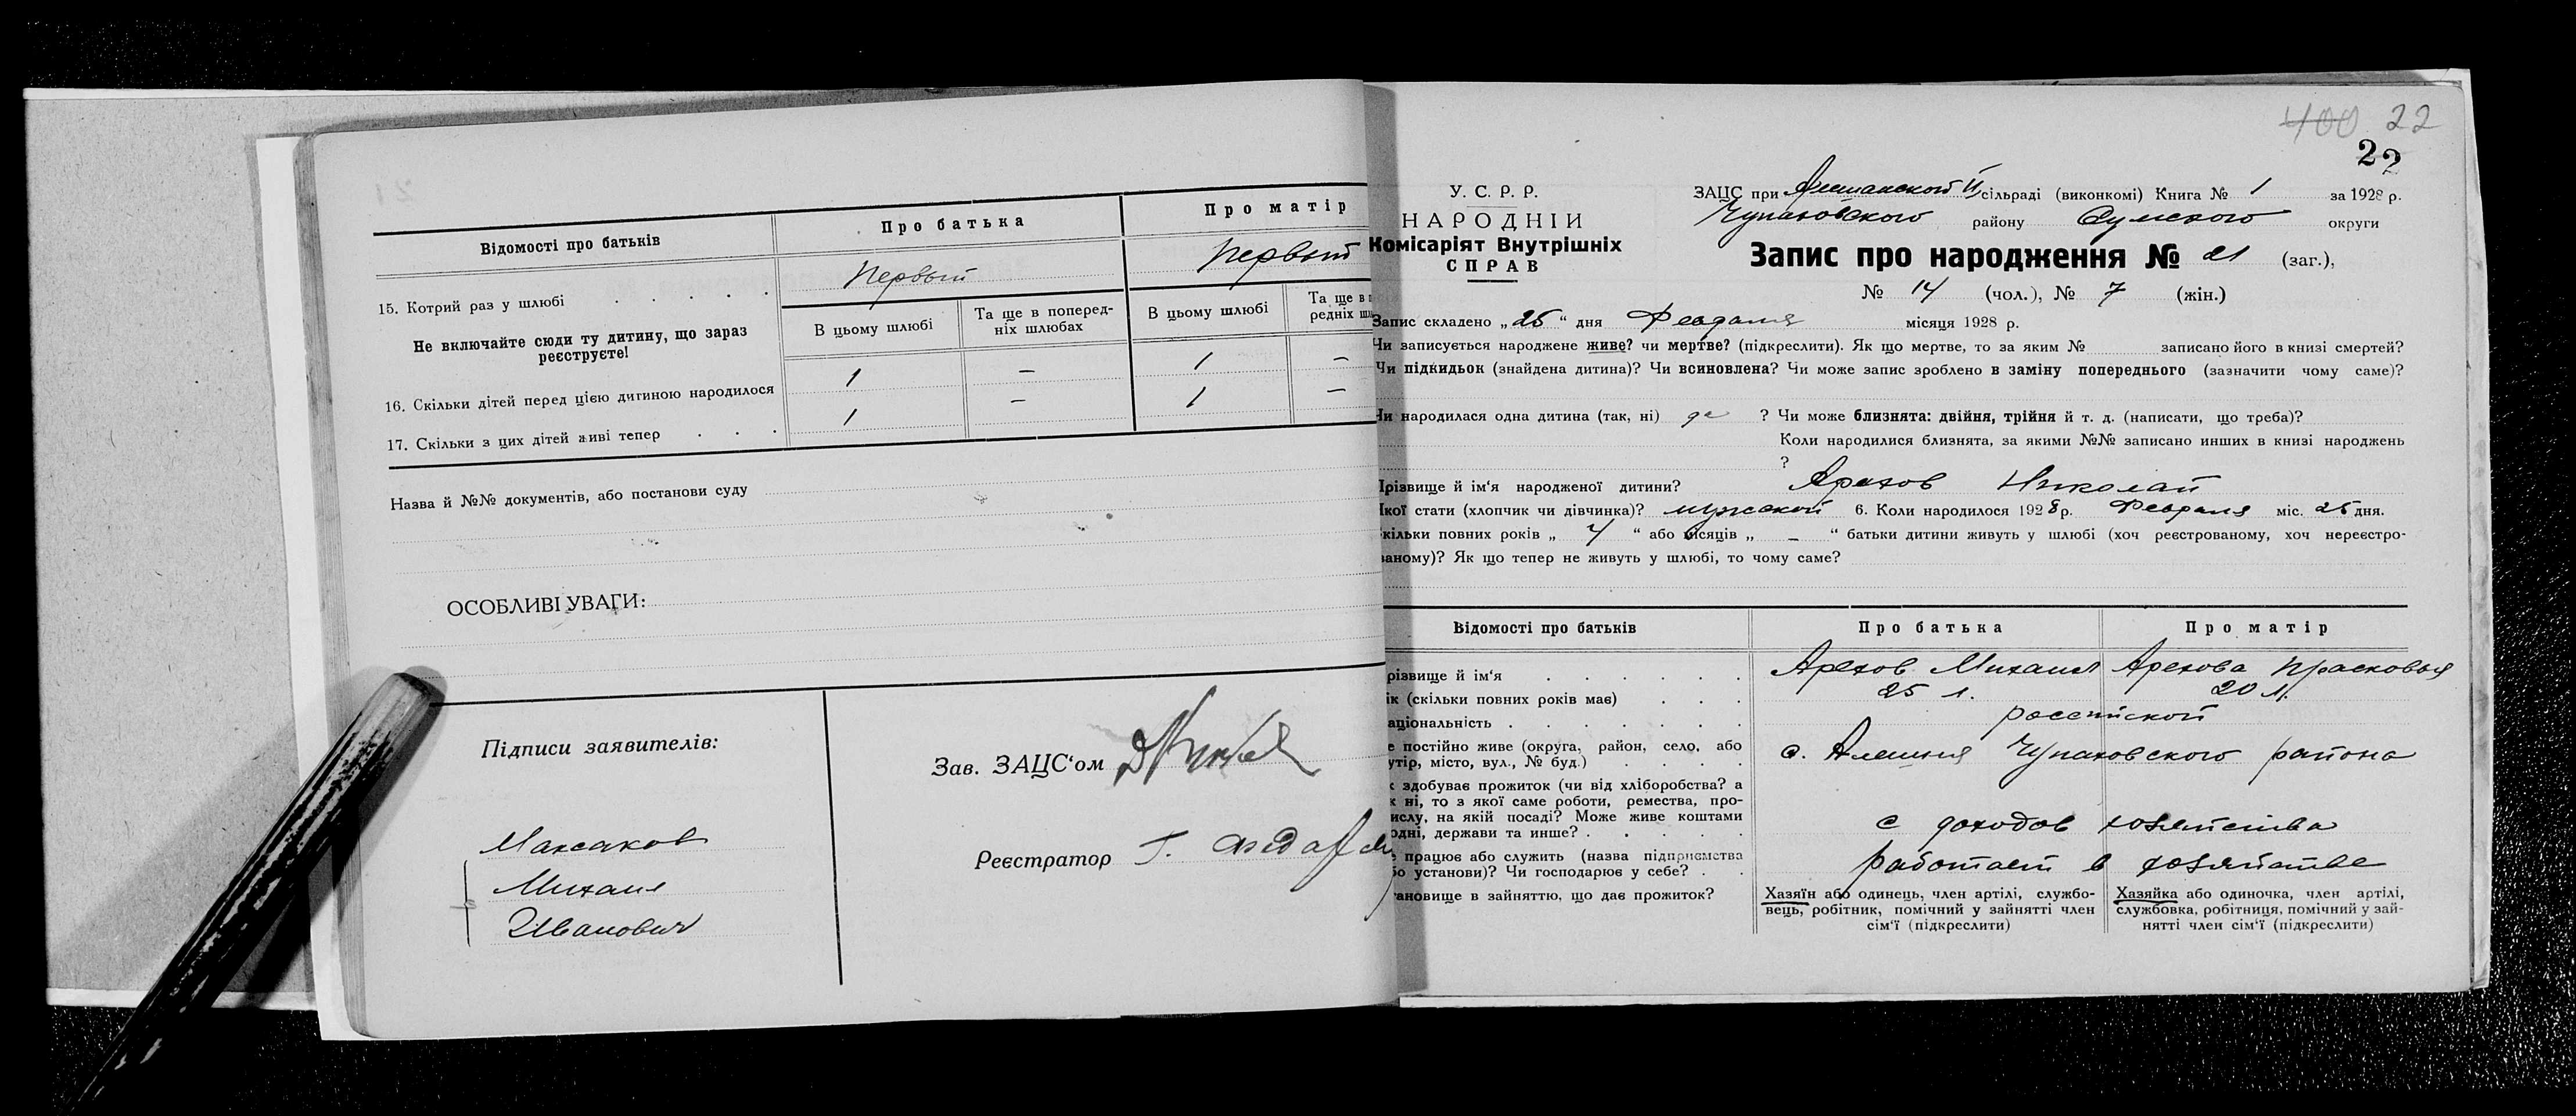 Відомості про батьків
Про батька
Про матір
15. Котрий раз у шлюбі . . . . .
Первый
Первый
Не включайте сюди ту дитину, що зараз
реєструєте!
В цьому шлюбі
Та ще в поперед-
ніх шлюбах
В цьому шлюбі
Та ще в п
редніх шл
16. Скільки дітей перед цією дитиною народилося
1 — 1 —
17. Скільки з цих дітей живі тепер . . .
1 — 1 —
Назва й №№ документів, або постанови суду
ОСОБЛИВІ УВАГИ:
Підписи заявителів:
Максаков
Михаил
Иванович
Зав. ЗАЦС‘ом
Реєстратор Г.
400 22
22
У. С. Р. Р.
НАРОДНІЙ
Комісаріят Внутрішніх
СПРАВ
ЗАЦС при Алешанского II сільраді (виконкомі) Книга № 1 за 1928 р.
Чупаховского району Сумского округи
Запис про народження № 21 (заг.),
№ 14 (чол.), № 7 (жін.)
Запис складено „25“ дня Февраля місяця 1928 р.
Чи записується народжене живе? чи мертве? (підкреслити). Як що мертве, то за яким № записано його в книзі смертей?
Чи підкидьок (знайдена дитина)? Чи всиновлена? Чи може запис зроблено в заміну попереднього (зазначити чому саме)?
Чи народилася одна дитина (так, ні) да ? Чи може близнята: двійня, трійня й т. д. (написати, що треба)?
Коли народилися близнята, за якими №№ записано инших в книзі народжень
?
Прізвище й ім‘я народженої дитини? Арехов Николай
Якої стати (хлопчик чи дівчинка)? мужской 6. Коли народилося 1928 р. Февраля міс. 25 дня.
кільки повних років „ 4 “ або місяців „ — “ батьки дитини живуть у шлюбі (хоч реєстрованому, хоч нереєстро-
ваному)? Як що тепер не живуть у шлюбі, то чому саме?
Відомості про батьків
Про батька
Про матір
різвище й ім‘я . . . . . .
Арехов Михаил
Арехова Прасковья
ік (скільки повних років має) . . .
25 л.
20 л.
аціональність . . . . . . .
российской
е постійно живе (округа, район, село, або
утір, місто, вул., № буд.) . . . .
с. Алешня Чупаховского района
к здобуває прожиток (чи від хліборобства? а
к ні, то з якої саме роботи, ремества, про-
ислу, на якій посаді? Може живе коштами
одні, держави та инше? . . . . .
с доходов хозяйства
е працює або служить (назва підприємства
бо установи)? Чи господарює у себе? . .
работает в хозяйстве
тановище в зайняттю, що дає прожиток?
Хазяїн або одинець, член артілі, службо-
вець, робітник, помічний у зайнятті член
сім‘ї (підкреслити)
Хазяйка або одиночка, член артілі,
службовка, робітниця, помічний у зай-
нятті член сім‘ї (підкреслити)